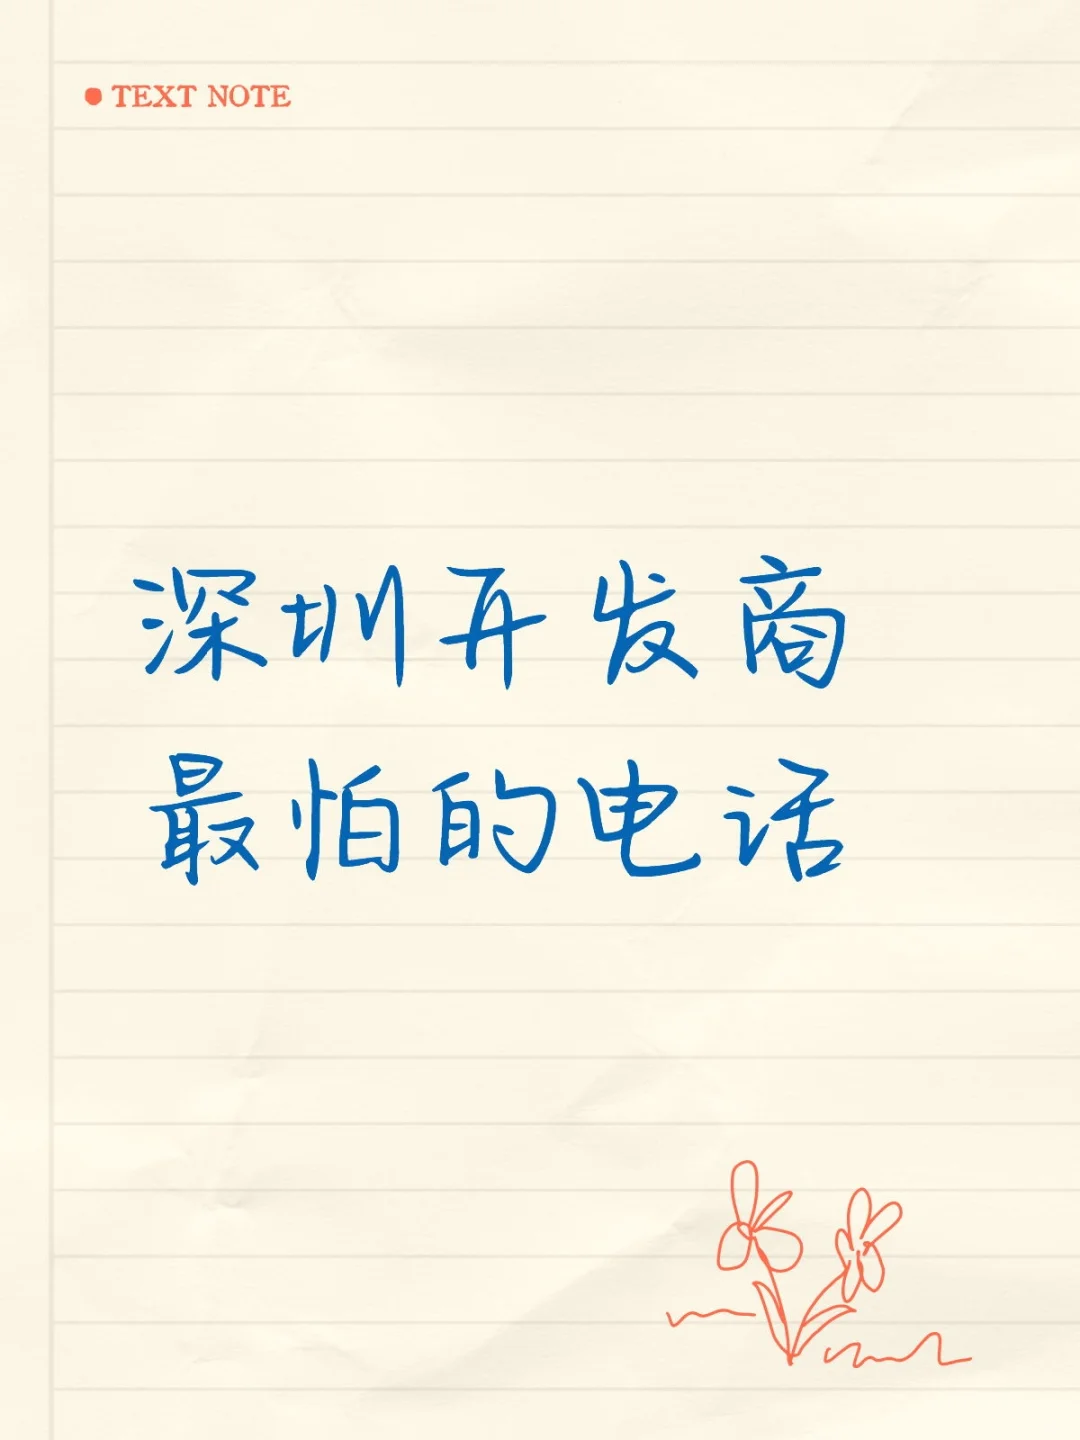 TEXT NOTE
深圳开发商
最怕的电话